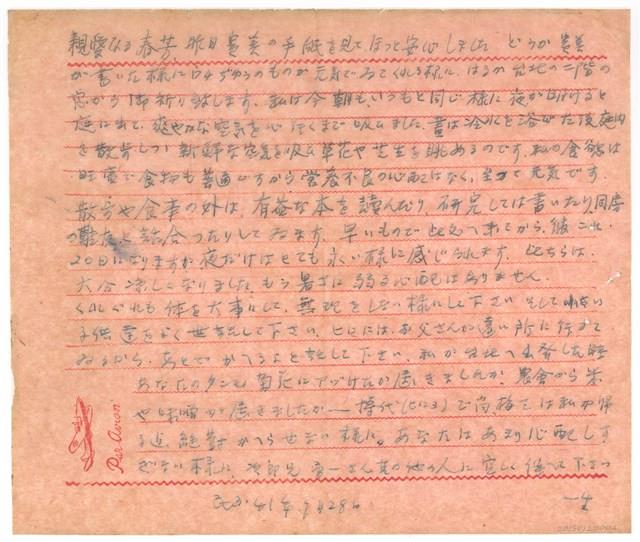 親愛なる春芳、昨日貴美の手紙を見て、ほっと安心しました どうか貴美
が書いた様に口4ぢゆうのものが元気でゐてくれる様に、はるか台北の二階の
窓から御祈り致します、私は今朝もいつもと同じ様に夜が明けると
庭に出て、爽やかな空気を心行くまで吸ひました、昔は冷水を浴びた後庭内
を散歩しつつ新鮮な空気を吸ひ草花や芝生を眺めるのです、私の食欲は
旺盛で食物も普通ですから営養不良の心配はなく、至って元気です。
散歩や食事の外は、有益な本を読んだり、研究しては書いたり、同房
の難友と話合ったりして ゐます、早いもので 此処へ来てから、彼これ
20日になりますが夜だけはとても永い様に感じられます、此ちらは、
大分涼しくなりました、もう暑さに弱る心配はありません、
くれぐれも体を大事にして、無理をしない様にして下さい そして
子供達をよく世話して下さい、ヒロには、お父さんが遠い所に行って
ゐるから、あとでかへるよと話して下さい、私が台北へ出発した時
あなたのタンも 菊花にアヅけたが届きましたか、農会から米
や味噌が届きましたか―
る迄、絶対かへらせない様に。あなたはあまり心配しす
ぎない様に、次郎兄 其の他の人に宜しく傳へて下さい
41年9月28日 一生
Par Avion